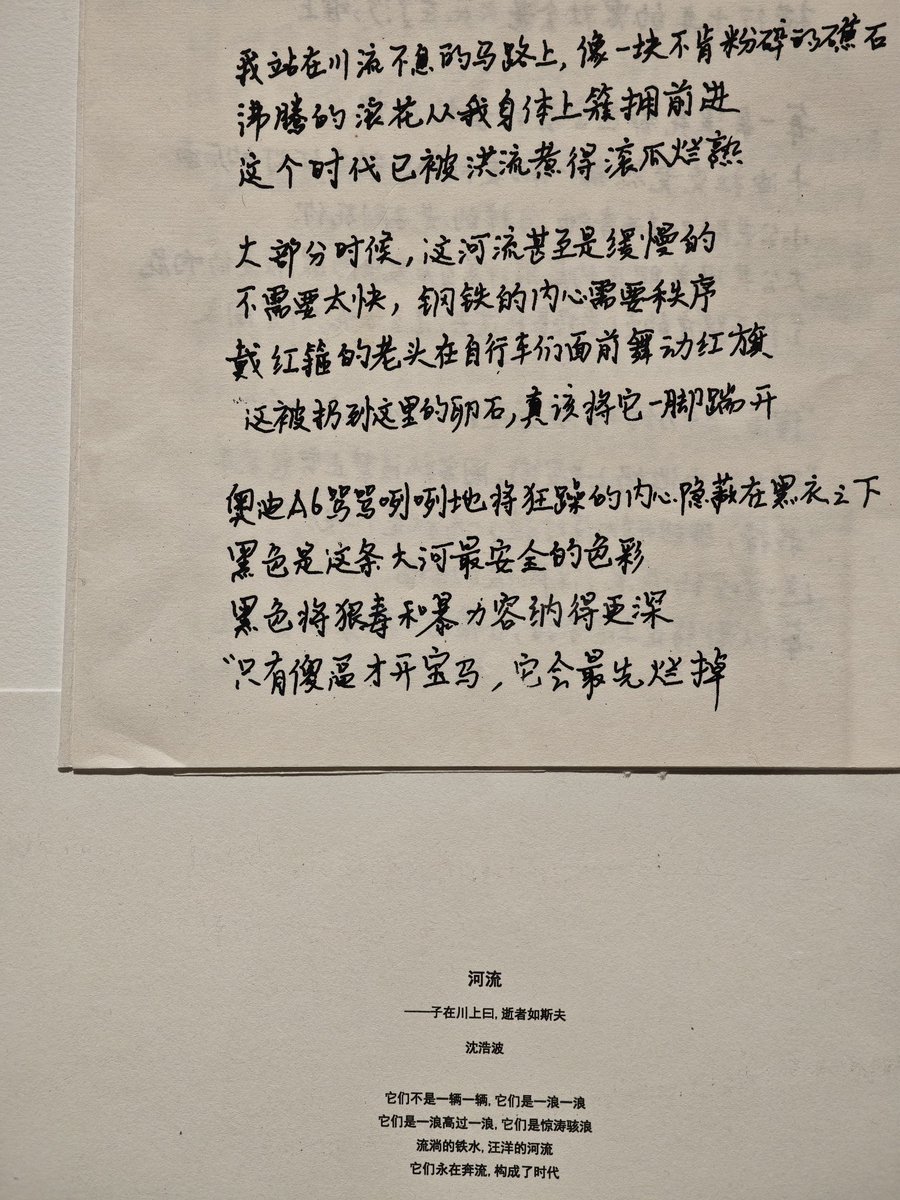 我站在川流不息的马路上，像一块不肯粉碎的礁石
沸腾的浪花从我身体上簇拥前进
这个时代已被洪流煮得滚瓜烂熟
大部分时候，这河流甚至是缓慢的
不需要太快，钢铁的内心需要秩序
戴红箍的老头在自行车们面前舞动红旗
这被扔到这里的卵石，真该将它一脚踹开
奥迪A6骂骂咧咧地将狂躁的内心隐蔽在黑衣之下
黑色是这条大河最安全的色彩
黑色将狠毒和暴力容纳得更深
“只有傻逼才开宝马，它会最先烂掉
河流
——子在川上曰，逝者如斯夫
沈浩波
它们不是一辆一辆，它们是一浪一浪
它们是一浪高过一浪，它们是惊涛骇浪
流淌的铁水，汪洋的河流
它们永在奔流，构成了时代